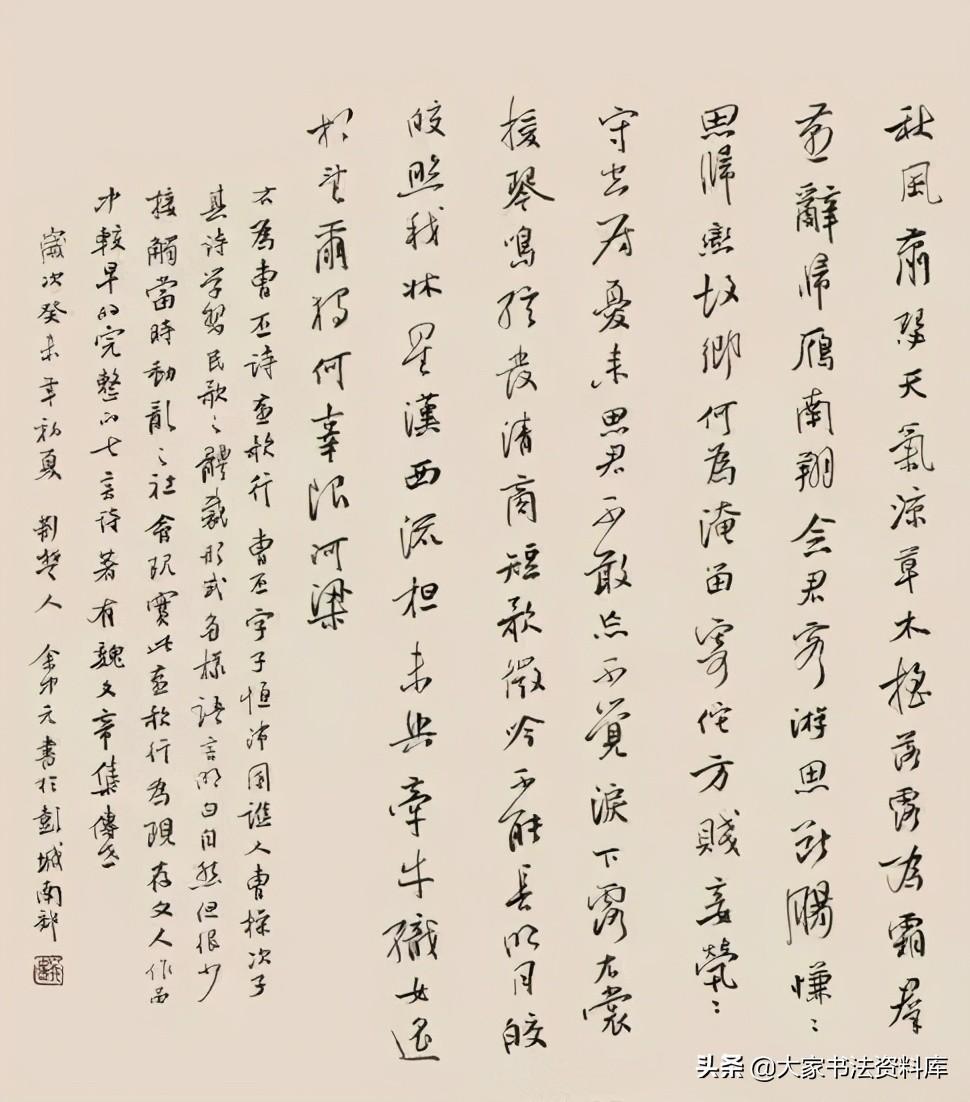 秋風蕭瑟天氣涼草木搖落露為霜羣
燕辭歸雁南翔念君客游思斷腸慊〻
思歸戀故鄉何為淹留寄佗方賤妾煢〻
守空房憂来思君不敢忘不覺淚下霑衣裳
援琴鳴弦發清商短歌微吟不能長明月皎
皎照我牀星漢西流夜未央牽牛織女遥
相望爾獨何辜限河梁
右為曹丕詩燕歌行 曹丕字子恒沛國譙人曹操次子
其詩学習民歌之體裁形式多樣語言明白自然但很少
接觸當時動亂之社會現實此燕歌行為現存文人作品
中較早的完整的七言詩著有魏文帝集傳世
歲次癸未年初夏 荆楚人 余中元書於彭城南郊
头条 @大家书法资料库